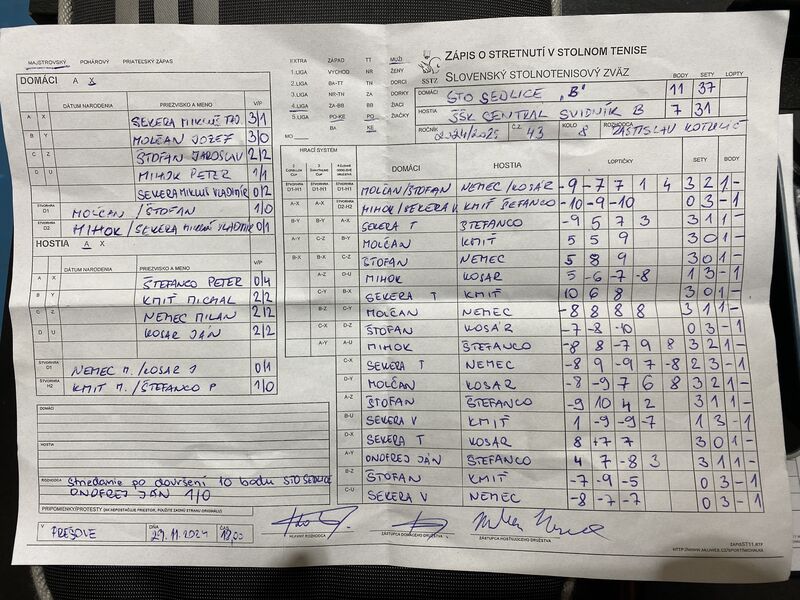 MAJSTROVSKÝ POHÁROVÝ PRIATEĽSKÝ ZÁPAS
DOMÁCI A X
DÁTUM NARODENIA PRIEZVISKO A MENO V/P
A X SEKERA MIKLUŠ TAD. 3/1
B Y MOLČAN JOZEF 3/0
C Z ŠTOFAN JAROSLAV 2/2
D U MIHOK PETER 1/1
SEKERA MIKLUŠ VLADIMÍR 0/2
ŠTVORHRA D1 MOLČAN /ŠTOFAN 1/0
ŠTVORHRA D2 MIHOK / SEKERA MIKLUŠ VLADIMÍR 0/1
HOSTIA A X
DÁTUM NARODENIA PRIEZVISKO A MENO V/P
A X ŠTEFANCO PETER 0/4
B Y KMIŤ MICHAL 2/2
C Z NEMEC MILAN 2/2
D U KOSAR JÁN 2/2
ŠTVORHRA D1 NEMEC M. /KOSAR J 0/1
ŠTVORHRA H2 KMIT M. /ŠTEFANCO P 1/0
DOMÁCI
HOSTIA
ROZHODCA striedanie po dovršení 10 bodu STO SEDLICE
ONDREJ JÁN 1/0
PRIPOMIENKY/PROTESTY (AK NEPOSTAČUJE PRIESTOR, POUŽITE ZADNÚ STRANU ORIGINÁLU)
V PREŠOVE DŇA 29.11.2024 ČAS 18,00
HLAVNÝ ROZHODCA
ZÁSTUPCA DOMÁCEHO DRUŽSTVA
ZÁSTUPCA HOSŤUJÚCEHO DRUŽSTVA
EXTRA ZÁPAD TT MUŽI
1.LIGA VÝCHOD NR ŽENY
2.LIGA BA-TT TN DORCI
3.LIGA NR-TN ZA DORKY
4.LIGA ZA-BB BB ŽIACI
5.LIGA PO-KE PO ŽIAČKY
MO BA KE
SSTZ
ZÁPIS O STRETNUTÍ V STOLNOM TENISE
SLOVENSKÝ STOLNOTENISOVÝ ZVÄZ
BODY SETY LOPTY
DOMÁCI STO SEDLICE „B" 11 37
HOSTIA ŠSK CENTRAL SVIDNÍK B 7 31
ROČNÍK 2024/2025 Č.Z. 43 KOLO 8 ROZHODCA
HRACÍ SYSTÉM
DOMÁCI HOSTIA LOPTIČKY SETY BODY
D1-H1 D1-H1 D1-H1 MOLČAN/ŠTOFAN NEMEC/KOSÁR -9 -7 7 1 4 3 2 1 -
A-X A-X D2-H2 MIHOK/SEKERA V. KMIŤ ŠTEFANCO -10 -9 -10 0 3 - 1
B-Y B-Y A-X SEKERA T ŠTEFANCO -9 5 7 3 3 1 1 -
A-Y C-Z B-Y MOLČAN KMIŤ 5 5 9 3 0 1 -
B-X B-X C-Z ŠTOFAN NEMEC 5 8 9 3 0 1 -
A-Z D-U MIHOK KOSAR 5 -6 -7 -8 1 3 - 1
C-Y B-X SEKERA T KMIŤ 10 6 8 3 0 1 -
B-Z C-Y MOLČAN NEMEC -8 8 8 8 3 1 1 -
C-X D-Z ŠTOFAN KOSÁR -7 -8 -10 0 3 - 1
A-Y A-U MIHOK ŠTEFANCO -8 8 -7 9 8 3 2 1 -
C-X SEKERA T NEMEC -8 9 -9 7 -8 2 3 - 1
D-Y MOLČAN KOSAR -8 -9 7 6 8 3 2 1 -
A-Z ŠTOFAN ŠTEFANCO -9 10 4 2 3 1 1 -
B-U SEKERA V KMIŤ 1 -9 -9 -7 1 3 - 1
D-X SEKERA T KOSAR 8 +7 7 3 0 1 -
A-Y ONDREJ JÁN ŠTEFANCO 4 7 -8 3 3 1 1 -
B-Z ŠTOFAN KMIŤ -7 -9 -5 0 3 - 1
C-U SEKERA V NEMEC -8 -7 -7 0 3 - 1
ZAPISST11.RTF